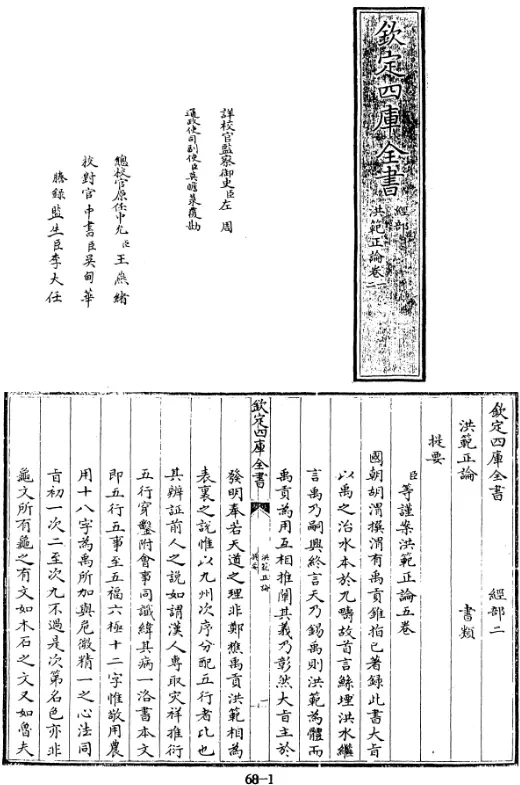 欽定四庫全書
經部
洪範正論卷一
二
詳校官監察御史臣左周
通政使司副使臣莫瞻菉覆勘
總校官原任中允臣王燕緒
校對官中書臣吳甸華
謄錄監生臣李大任
欽定四庫全書
經部二
洪範正論
書類
提要
臣等謹案洪範正論五卷
國朝胡渭撰渭有禹貢錐指已著錄此書大旨
以禹之治水本於九疇故首言鯀堙洪水繼
言禹乃嗣興終言天乃錫禹則洪範為體而
禹貢為用互相推闡其義乃彰然大旨主於
欽定四庫全書
洪範正論
提要
一
發明奉若天道之理非鄭樵禹貢洪範相為
表裏之說惟以九州次序分配五行者比也
其辨証前人之說如謂漢人專取災祥推衍
五行穿鑿附會事同讖緯其病一洛書本文
即五行五事至五福六極二十字惟敬用農
用十八字為禹所加與危微精一之心法同
旨初一次二至次九不過是次第名色亦非
龜文所有龜之有文如木石之文又如魯夫
68-1